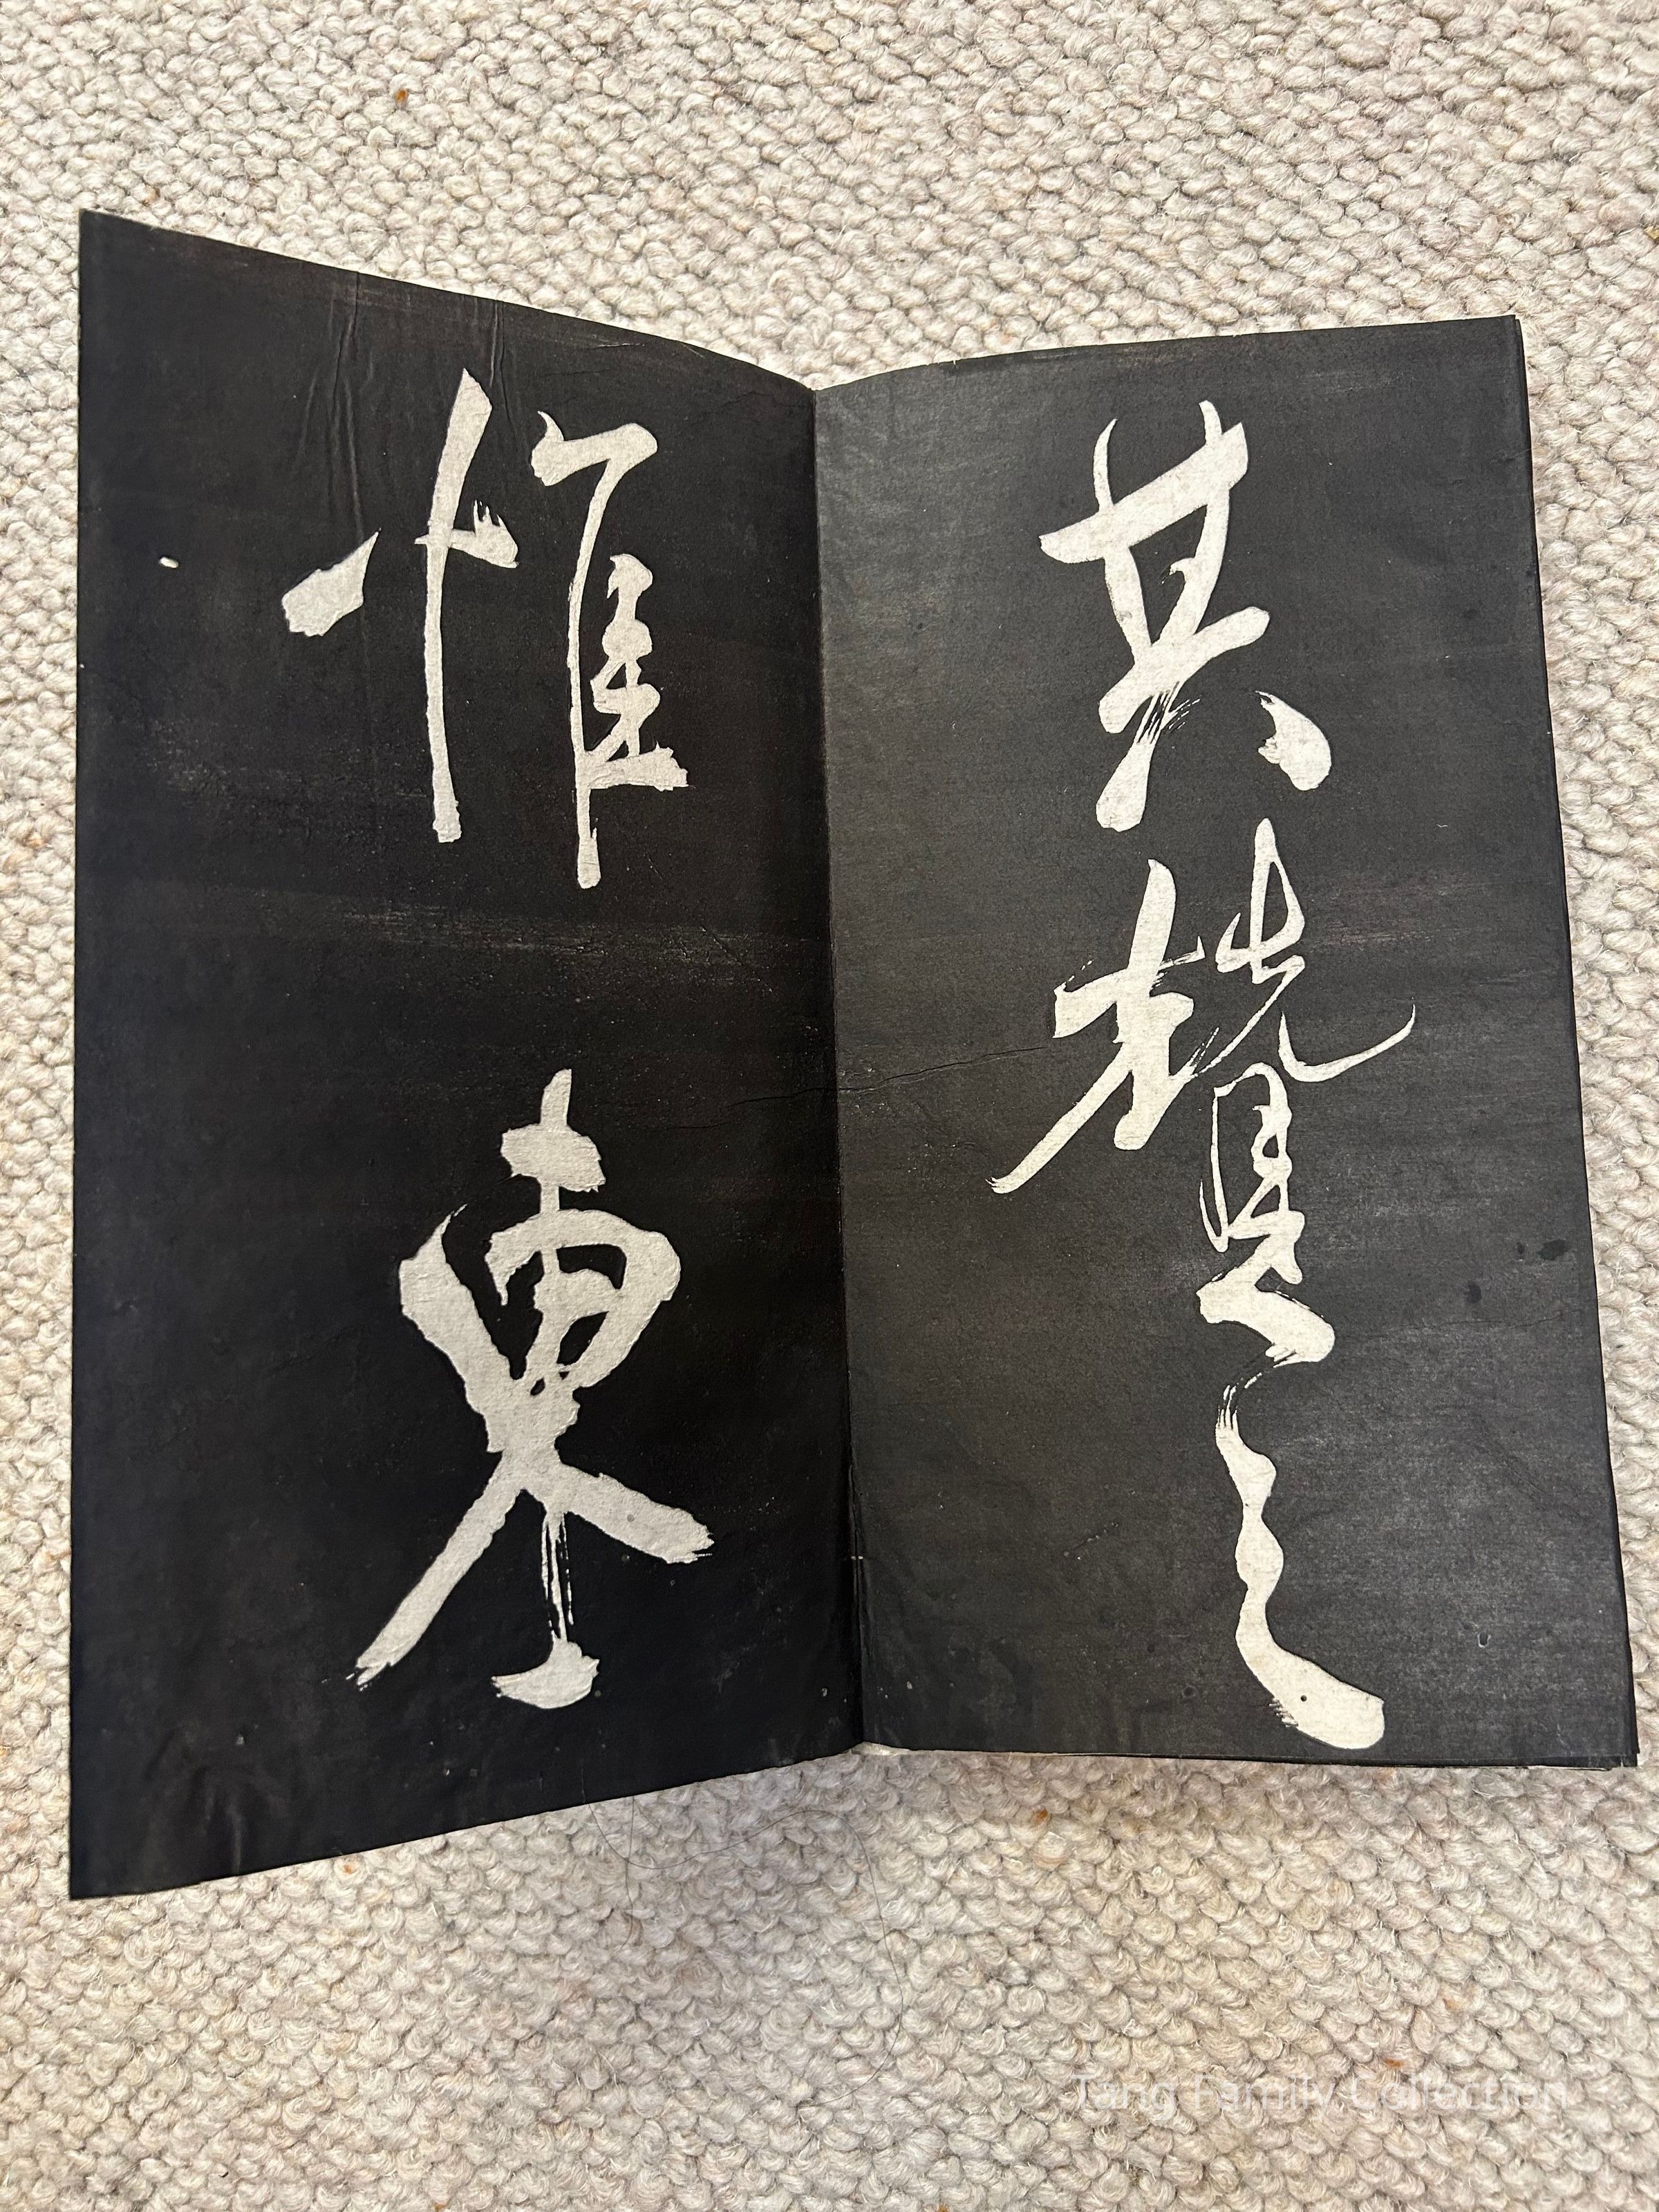 其贊之
惟東
Tang Family Collection